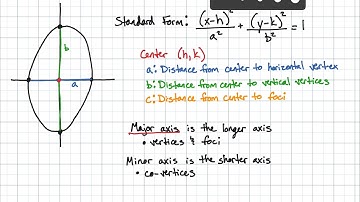 Standard Form: (x-h)²/a² + (y-k)²/b² = 1
Center (h,k)
a: Distance from center to horizontal vertex
b: Distance from center to vertical vertices
c: Distance from center to foci
b
a
Major axis is the longer axis
• vertices & foci
Minor axis is the shorter axis
• co-vertices